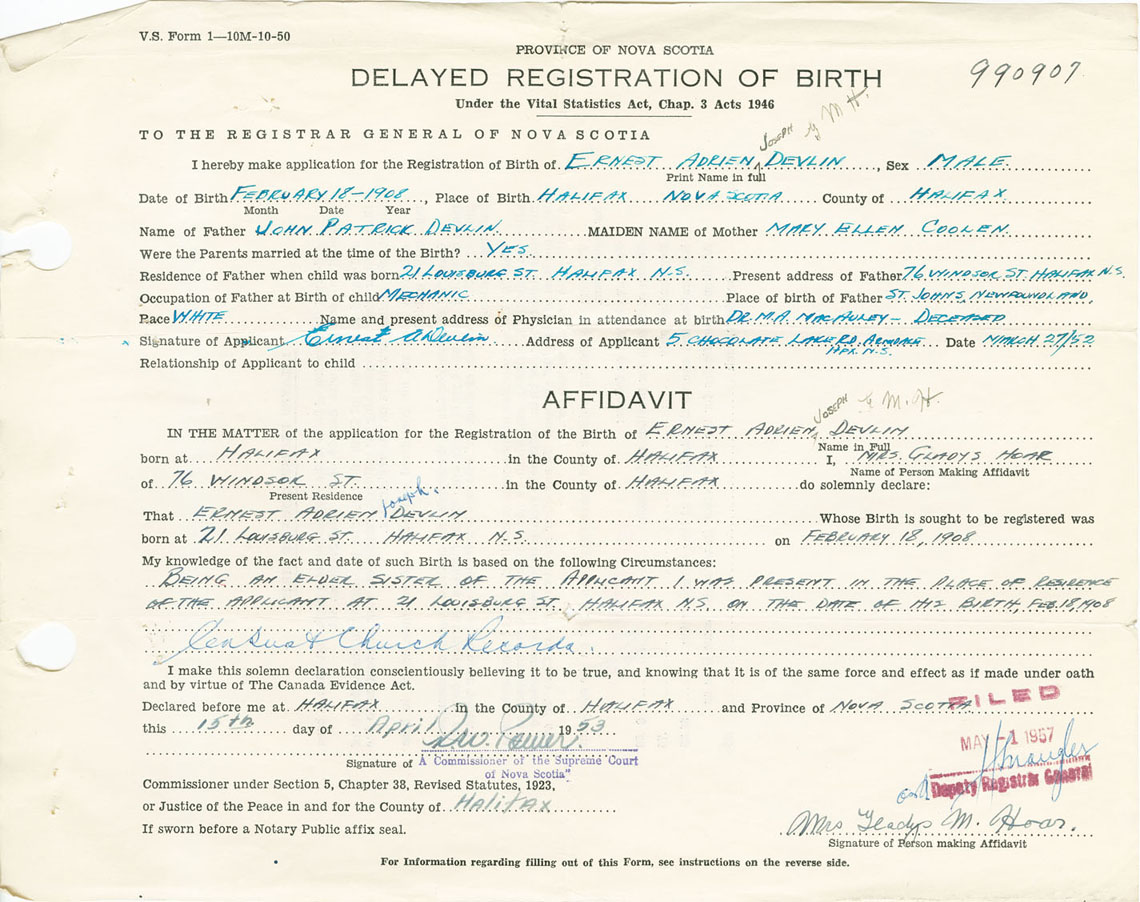 V.S. Form 1—10M-10-50
PROVINCE OF NOVA SCOTIA
990907
DELAYED REGISTRATION OF BIRTH
Under the Vital Statistics Act, Chap. 3 Acts 1946
TO THE REGISTRAR GENERAL OF NOVA SCOTIA
JOSEPH by M H.
I hereby make application for the Registration of Birth of ERNEST ADRIEN DEVLIN, Sex MALE.
Print Name in full
Date of Birth FEBRUARY 18-1908, Place of Birth HALIFAX NOVA SCOTIA County of HALIFAX
Month Date Year
Name of Father JOHN PATRICK DEVLIN MAIDEN NAME of Mother MARY ELLEN COOLEN
Were the Parents married at the time of the Birth? YES
Residence of Father when child was born 21 LOUISBURG ST. HALIFAX N.S. Present address of Father 76 WINDSOR ST. HALIFAX N.S.
Occupation of Father at Birth of child MECHANIC Place of birth of Father ST. JOHNS, NEWFOUNDLAND,
Race WHITE Name and present address of Physician in attendance at birth DR. M.A. MACAULEY – DECEASED
Signature of Applicant Ernest A Devlin Address of Applicant 5 CHOCOLATE LAKE RD. ARMDALE Date MARCH 27/52
HFX. N.S.
Relationship of Applicant to child
AFFIDAVIT
JOSEPH by M. H.
IN THE MATTER of the application for the Registration of the Birth of ERNEST ADRIEN DEVLIN
Name in Full
born at HALIFAX in the County of HALIFAX I, MRS. GLADYS HOAR
Name of Person Making Affidavit
of 76 WINDSOR ST. in the County of HALIFAX do solemnly declare:
Present Residence
Joseph.
That ERNEST ADRIEN DEVLIN Whose Birth is sought to be registered was
born at 21 LOUISBURG ST. HALIFAX N.S. on FEBRUARY 18, 1908
My knowledge of the fact and date of such Birth is based on the following Circumstances:
BEING AN ELDER SISTER OF THE APPLICANT I WAS PRESENT IN THE PLACE OF RESIDENCE
OF THE APPLICANT AT 21 LOUISBURG ST. HALIFAX N.S. ON THE DATE OF HIS BIRTH, FEB. 18, 1908
Census & Church Records.
I make this solemn declaration conscientiously believing it to be true, and knowing that it is of the same force and effect as if made under oath
and by virtue of The Canada Evidence Act.
Declared before me at HALIFAX in the County of HALIFAX and Province of NOVA SCOTIA
FILED
this 15th day of April 1953
MAY -1 1957
Power.
Signature of A Commissioner of the Supreme Court
of Nova Scotia"
Deputy Registrar General
Commissioner under Section 5, Chapter 38, Revised Statutes, 1923,
or Justice of the Peace in and for the County of Halifax
Mrs Gladys M. Hoar.
If sworn before a Notary Public affix seal.
Signature of Person making Affidavit
For Information regarding filling out of this Form, see instructions on the reverse side.